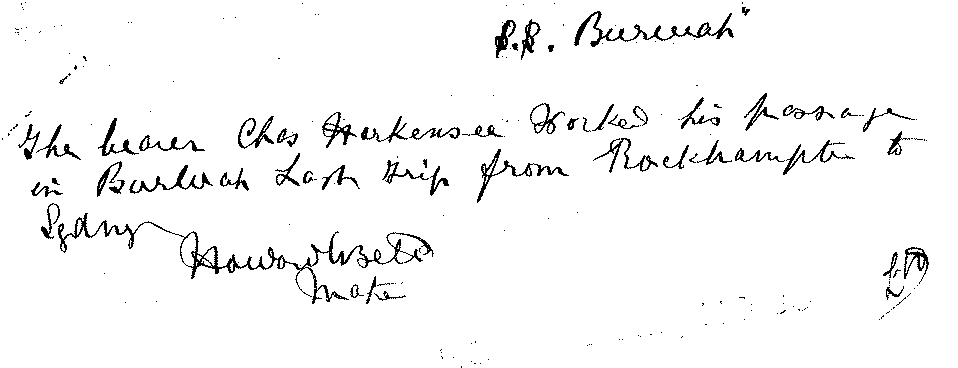 S.S. Burwah"
The bearer Chas Horkensee Worked his passage
in Burwah Last Trip from Rockhampton to
Sydney
Howard
Mate